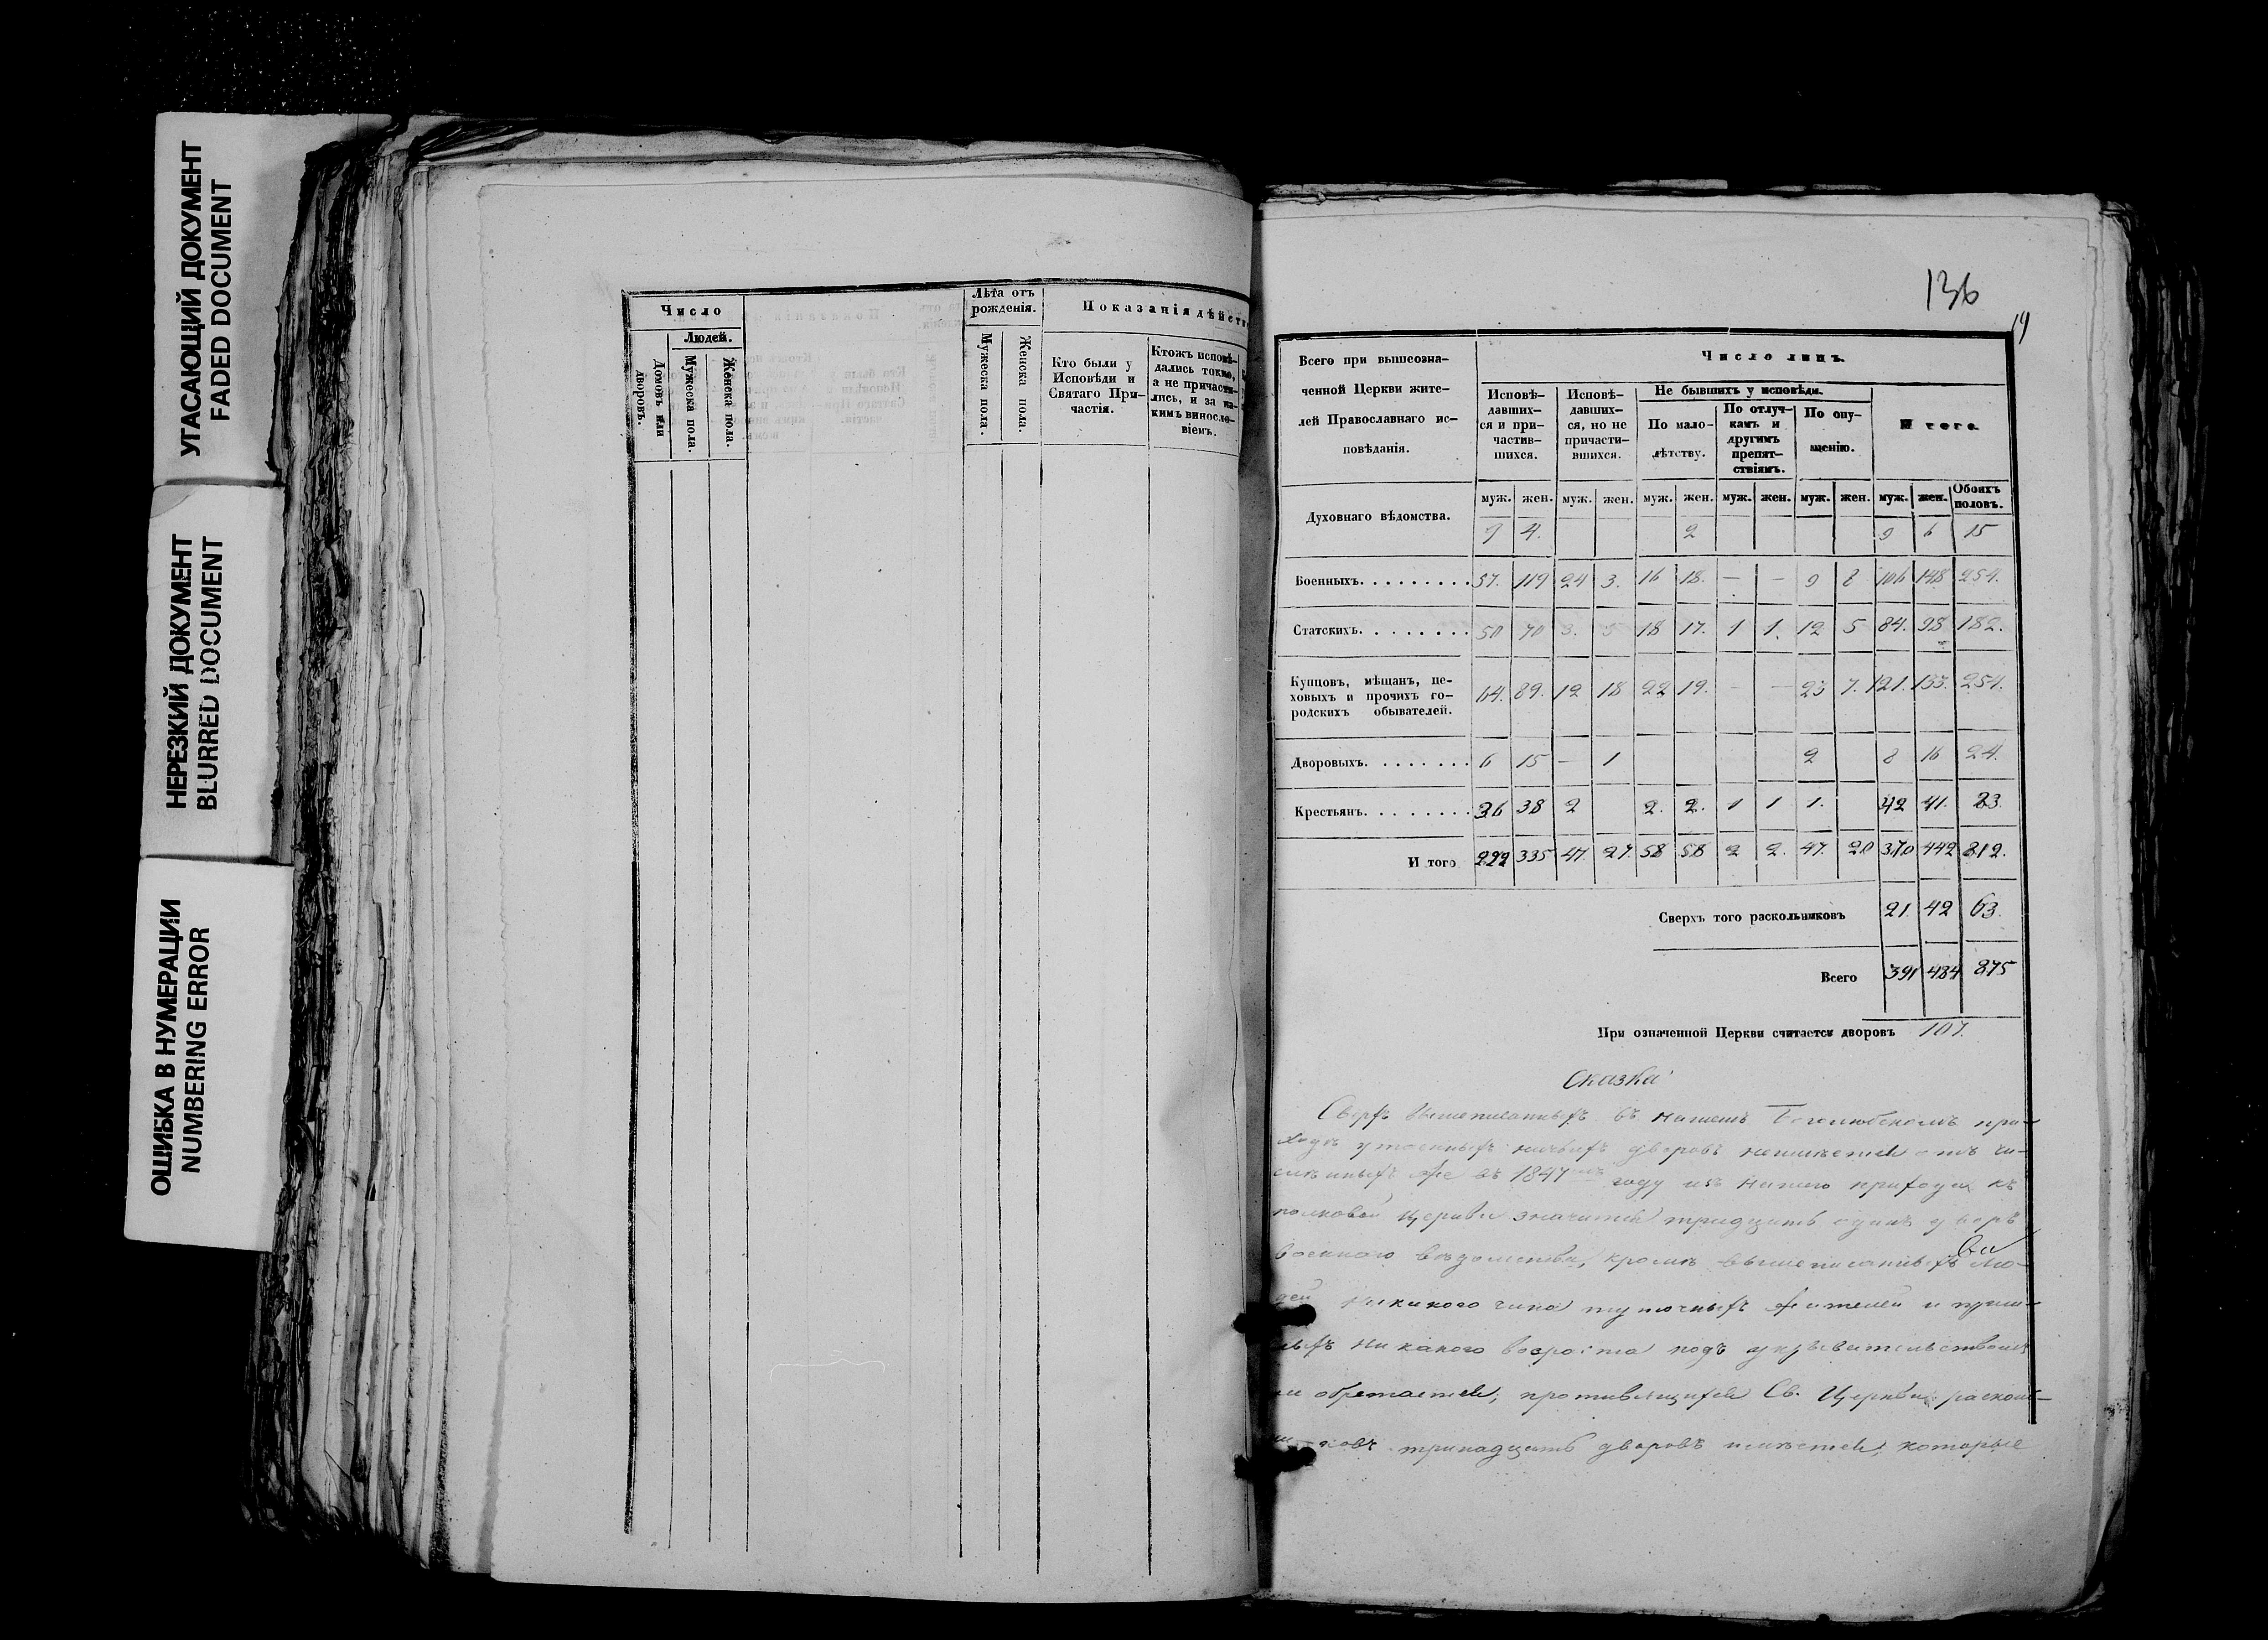 УГАСАЮЩИЙ ДОКУМЕНТ
FADED DOCUMENT
НЕРЕЗКИЙ ДОКУМЕНТ
BLURRED DOCUMENT
ОШИБКА В НУМЕРАЦИИ
NUMBERING ERROR
Число
Людей.
Домовъ или дворовъ.
Мужеска пола
Женска пола.
Лѣта отъ рожденія.
Мужеска пола.
Женска пола.
Показанія дѣйств
Кто были у
Исповѣди и
Святаго При-
частія.
Ктожъ исповѣ-
дались токмо,
а не причасти-
лись, и за ка-
кимъ винословіемъ.
136
Всего при вышеозна-
ченной Церкви жите-
лей Православнаго ис-
повѣданія.
Число лицъ.
Исповѣ-
давших-
ся и при-
частив-
шихся.
Исповѣ-
давших-
ся, но не
причасти-
вшихся.
Не бывшихъ у исповѣди.
По мало-
лѣтству.
По отлуч-
камъ и
другимъ
препят-
ствіямъ.
По опу-
щенію.
Итого
муж. жен. муж. жен. муж. жен. муж. жен. муж. жен. муж. жен. Обоихъ половъ.
Духовнаго вѣдомства. 9 4. 2 9 6 15
Военныхъ. 57. 119 24 3. 16 18. — — 9 8 106 148 254.
Статскихъ. 50 70 3. 5 18 17. 1 1. 12 5 84. 98 182.
Купцовъ, мѣщанъ, це-
ховыхъ и прочихъ го-
родскихъ обывателей. 64. 89. 12. 18 22 19. - — 23 7. 121. 133. 254.
Дворовыхъ. 6 15 — 1 2 8 16 24.
Крестьянъ. 36 38 2 2. 2. 1 1 1. 42 41. 83.
И того 222 335 47. 27. 58 58 2 2. 47. 20 370 442 812.
Сверхъ того раскольниковъ 21. 42 63.
Всего 391 484 875
При означенной Церкви считается дворовъ 107.
Сказка
Сверхъ вышеписанныхъ въ нашемъ Боголюбскомъ при-
ходѣ утаенныхъ ничьихъ дворовъ неимѣется отъ чи-
сленныхъ же въ 1847 году изъ нашего прихода къ
полковой Церкви значится тридцать одинъ дворъ
военнаго вѣдомства, кромѣ вышеписанныхъ лю-
дей никакого чина тутошнихъ жителей и приш-
лыхъ ни какого возроста подъ укрывательствомъ
не обретается, противящихся Св. Церкви расколь-
никовъ тринадцать дворовъ имѣется, которые